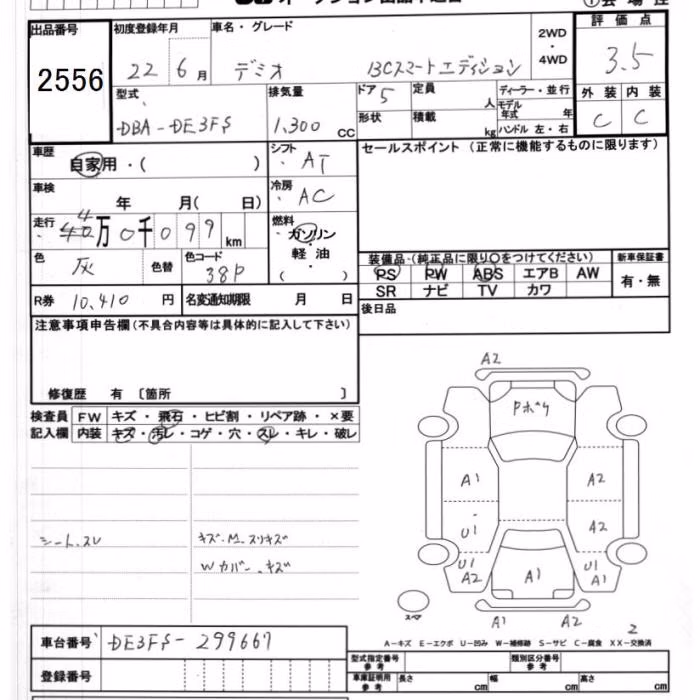 出品番号 初度登録年月 車名・グレード 2WD・4WD 評価点
2556 22年 6月 デミオ 13Cスマートエディション 3.5
型式 排気量 ドア 5 定員 人 ディーラー・並行 外装 内装
DBA-DE3FS 1,300 cc 形状 積載 kg モデル年式 年 C C
ハンドル 左・右
車歴 自家用・( ) シフト AT セールスポイント (正常に機能するものに限ります)
車検 年 月( 日) 冷房 AC
走行 4万0千099 km 燃料 ガソリン・軽油・( )
色 灰 色替 色コード 38P 装備品 (純正品に限り○をつけてください) 新車保証書
PS PW ABS エアB AW 有・無
SR ナビ TV カワ
R券 10,410 円 名変通知期限 月 日 後日品
注意事項申告欄 (不具合内容等は具体的に記入して下さい)
修復歴 有 〔箇所 〕
検査員 FW キズ・飛石・ヒビ割・リペア跡・×要
記入欄 内装 キズ・汚レ・コゲ・穴・スレ・キレ・破レ
シート、スレ キズ・M.スリキズ
Wカバー、キズ
A2
A1 A2
U1 A2
U1 A2 A1 U1 A1
スペア A1 A2
2
A-キズ E-エクボ U-凹み W-補修跡 S-サビ C-腐食 XX-交換済
車台番号 DE3FS-299667
型式指定番号 参考 類別区分番号 参考
登録番号 車庫証明用 参考 長さ cm 幅 cm 高さ cm